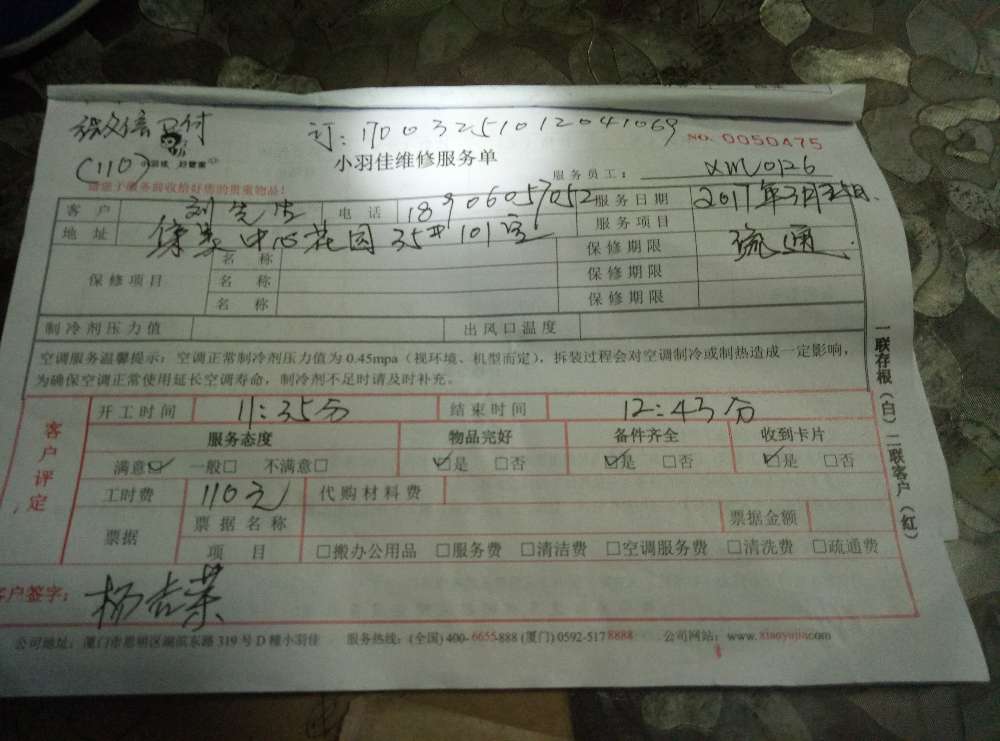 微信已付
(110)
订:17003251012041069
NO. 0050475
小羽佳 好管家
小羽佳维修服务单
服务员工: XM0126
请您于服务前收拾好您的贵重物品!
客户 刘先生 电话 18906057052 服务日期 2017年3月25日
地址 中心花园35#101室 服务项目 疏通
保修项目 名称 保修期限
名称 保修期限
名称 保修期限
制冷剂压力值 出风口温度
空调服务温馨提示:空调正常制冷剂压力值为0.45mpa(视环境、机型而定),拆装过程会对空调制冷或制热造成一定影响,
为确保空调正常使用延长空调寿命,制冷剂不足时请及时补充。
客户评定
开工时间 11:35分 结束时间 12:43分
服务态度 物品完好 备件齐全 收到卡片
满意☑ 一般□ 不满意□ ☑是 □否 ☑是 □否 ☑是 □否
工时费 110元 代购材料费
票据 票据名称 票据金额
项目 □搬办公用品 □服务费 □清洁费 □空调服务费 □清洗费 □疏通费
客户签字: 杨吉荣
公司地址:厦门市思明区湖滨东路319号D幢小羽佳 服务热线:(全国)400-6655-888 (厦门)0592-5178888 公司网站:www.xiaoyujia.com
一联存根(白)二联客户(红)